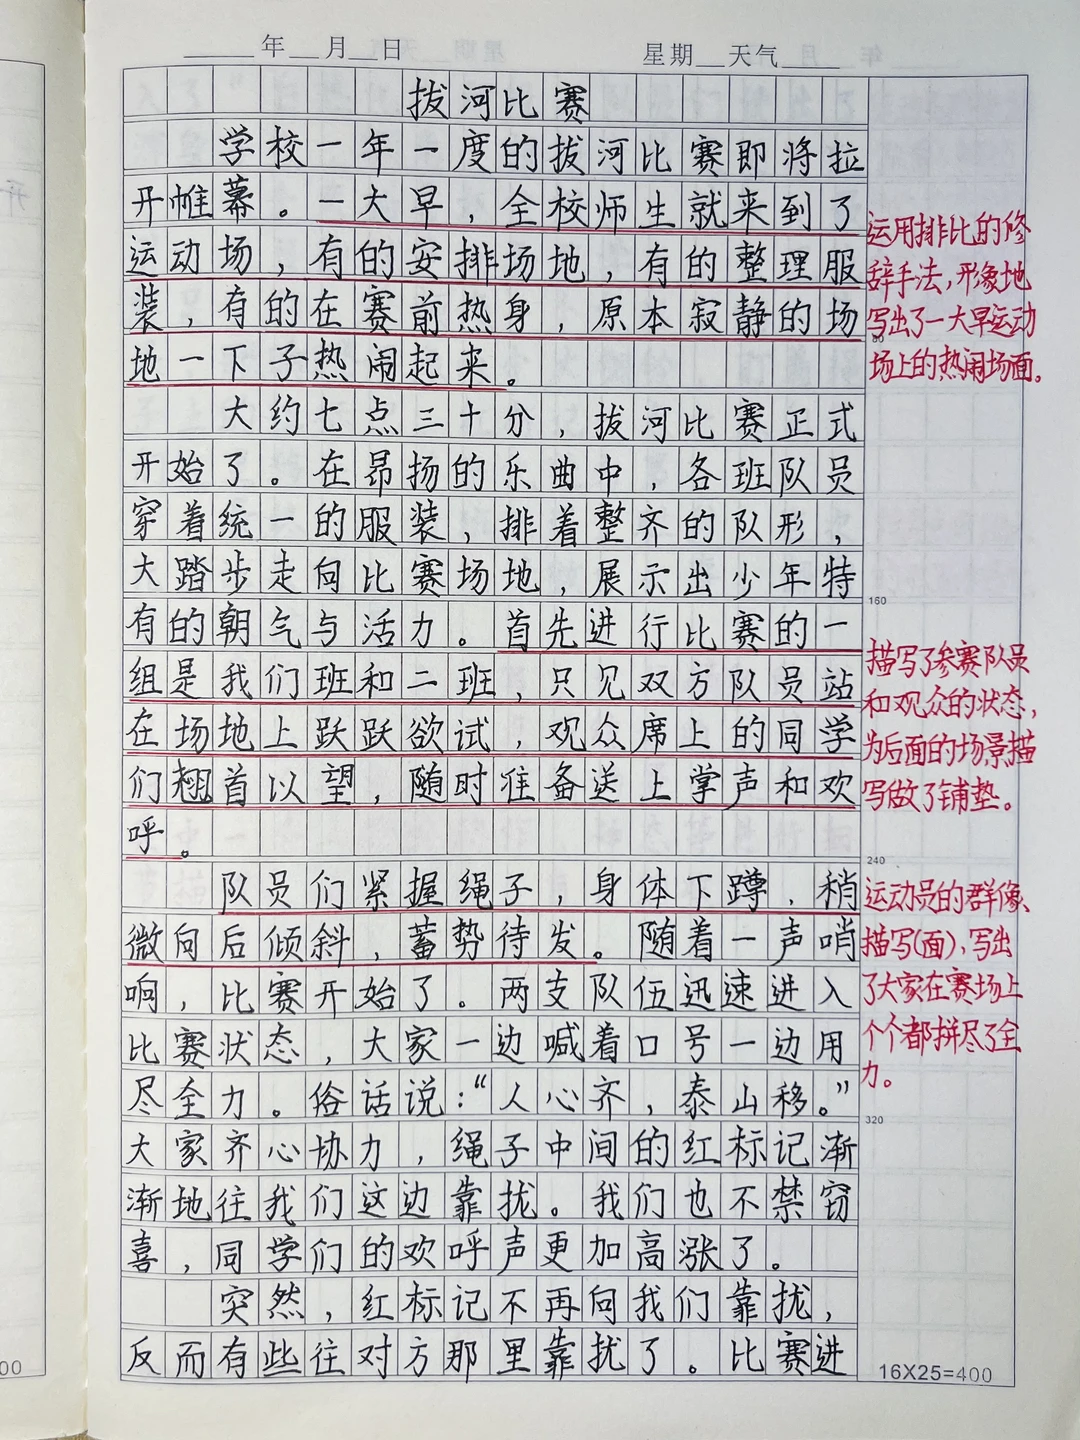 年 月 日 星期 天气
拔河比赛
学校一年一度的拔河比赛即将拉
开帷幕。一大早，全校师生就来到了
运动场，有的安排场地，有的整理服
装，有的在赛前热身，原本寂静的场
地一下子热闹起来。
大约七点三十分，拔河比赛正式
开始了。在昂扬的乐曲中，各班队员
穿着统一的服装，排着整齐的队形，
大踏步走向比赛场地，展示出少年特
有的朝气与活力。首先进行比赛的一
组是我们班和二班，只见双方队员站
在场地上跃跃欲试，观众席上的同学
们翘首以望，随时准备送上掌声和欢
呼。
队员们紧握绳子，身体下蹲，稍
微向后倾斜，蓄势待发。随着一声哨
响，比赛开始了。两支队伍迅速进入
比赛状态，大家一边喊着口号一边用
尽全力。俗话说：“人心齐，泰山移。”
大家齐心协力，绳子中间的红标记渐
渐地往我们这边靠拢。我们也不禁窃
喜，同学们的欢呼声更加高涨了。
突然，红标记不再向我们靠拢，
反而有些往对方那里靠拢了。比赛进
运用排比的修
辞手法，形象地
写出了一大早运动
场上的热闹场面。
80
160
描写了参赛队员
和观众的状态，
为后面的场景描
写做了铺垫。
240
运动员的群像、
描写（面），写出
了大家在赛场上
个个都拼尽了全
力。
320
16X25=400
00